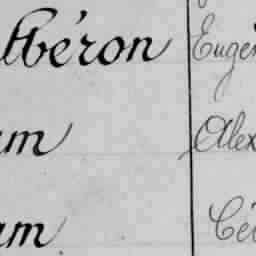 lbéron Eugén
am Alex
am Cél